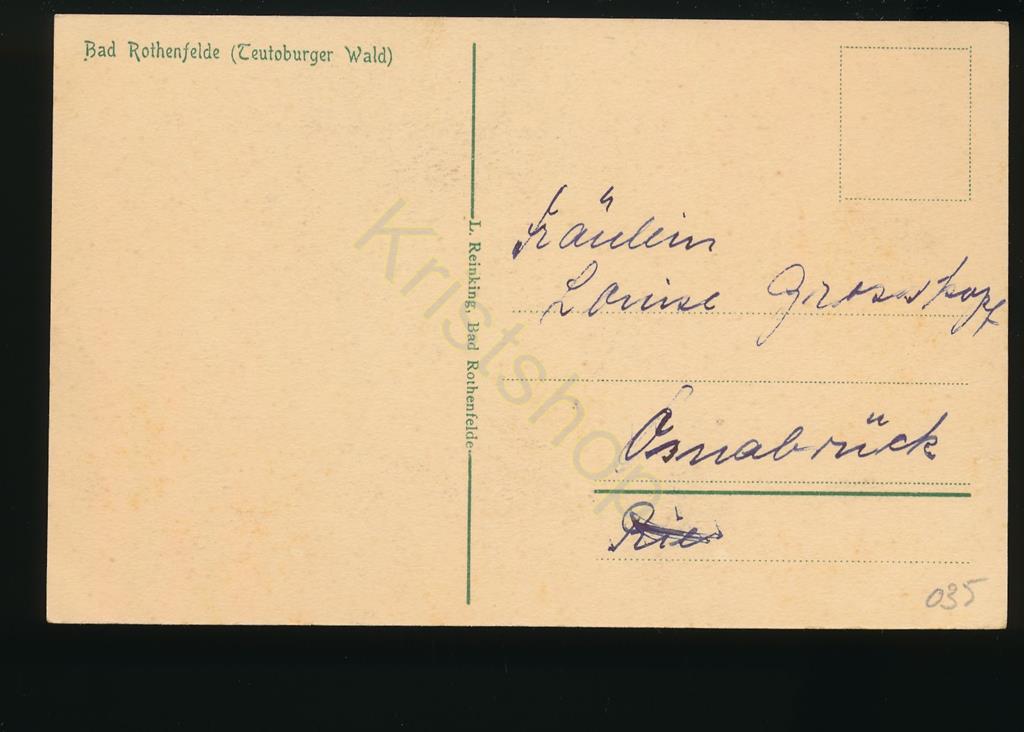 Bad Rothenfelde (Teutoburger Wald)
L. Reinking, Bad Rothenfelde.
Kristshop
Fräulein
Louise Grosskopf
Osnabrück
035